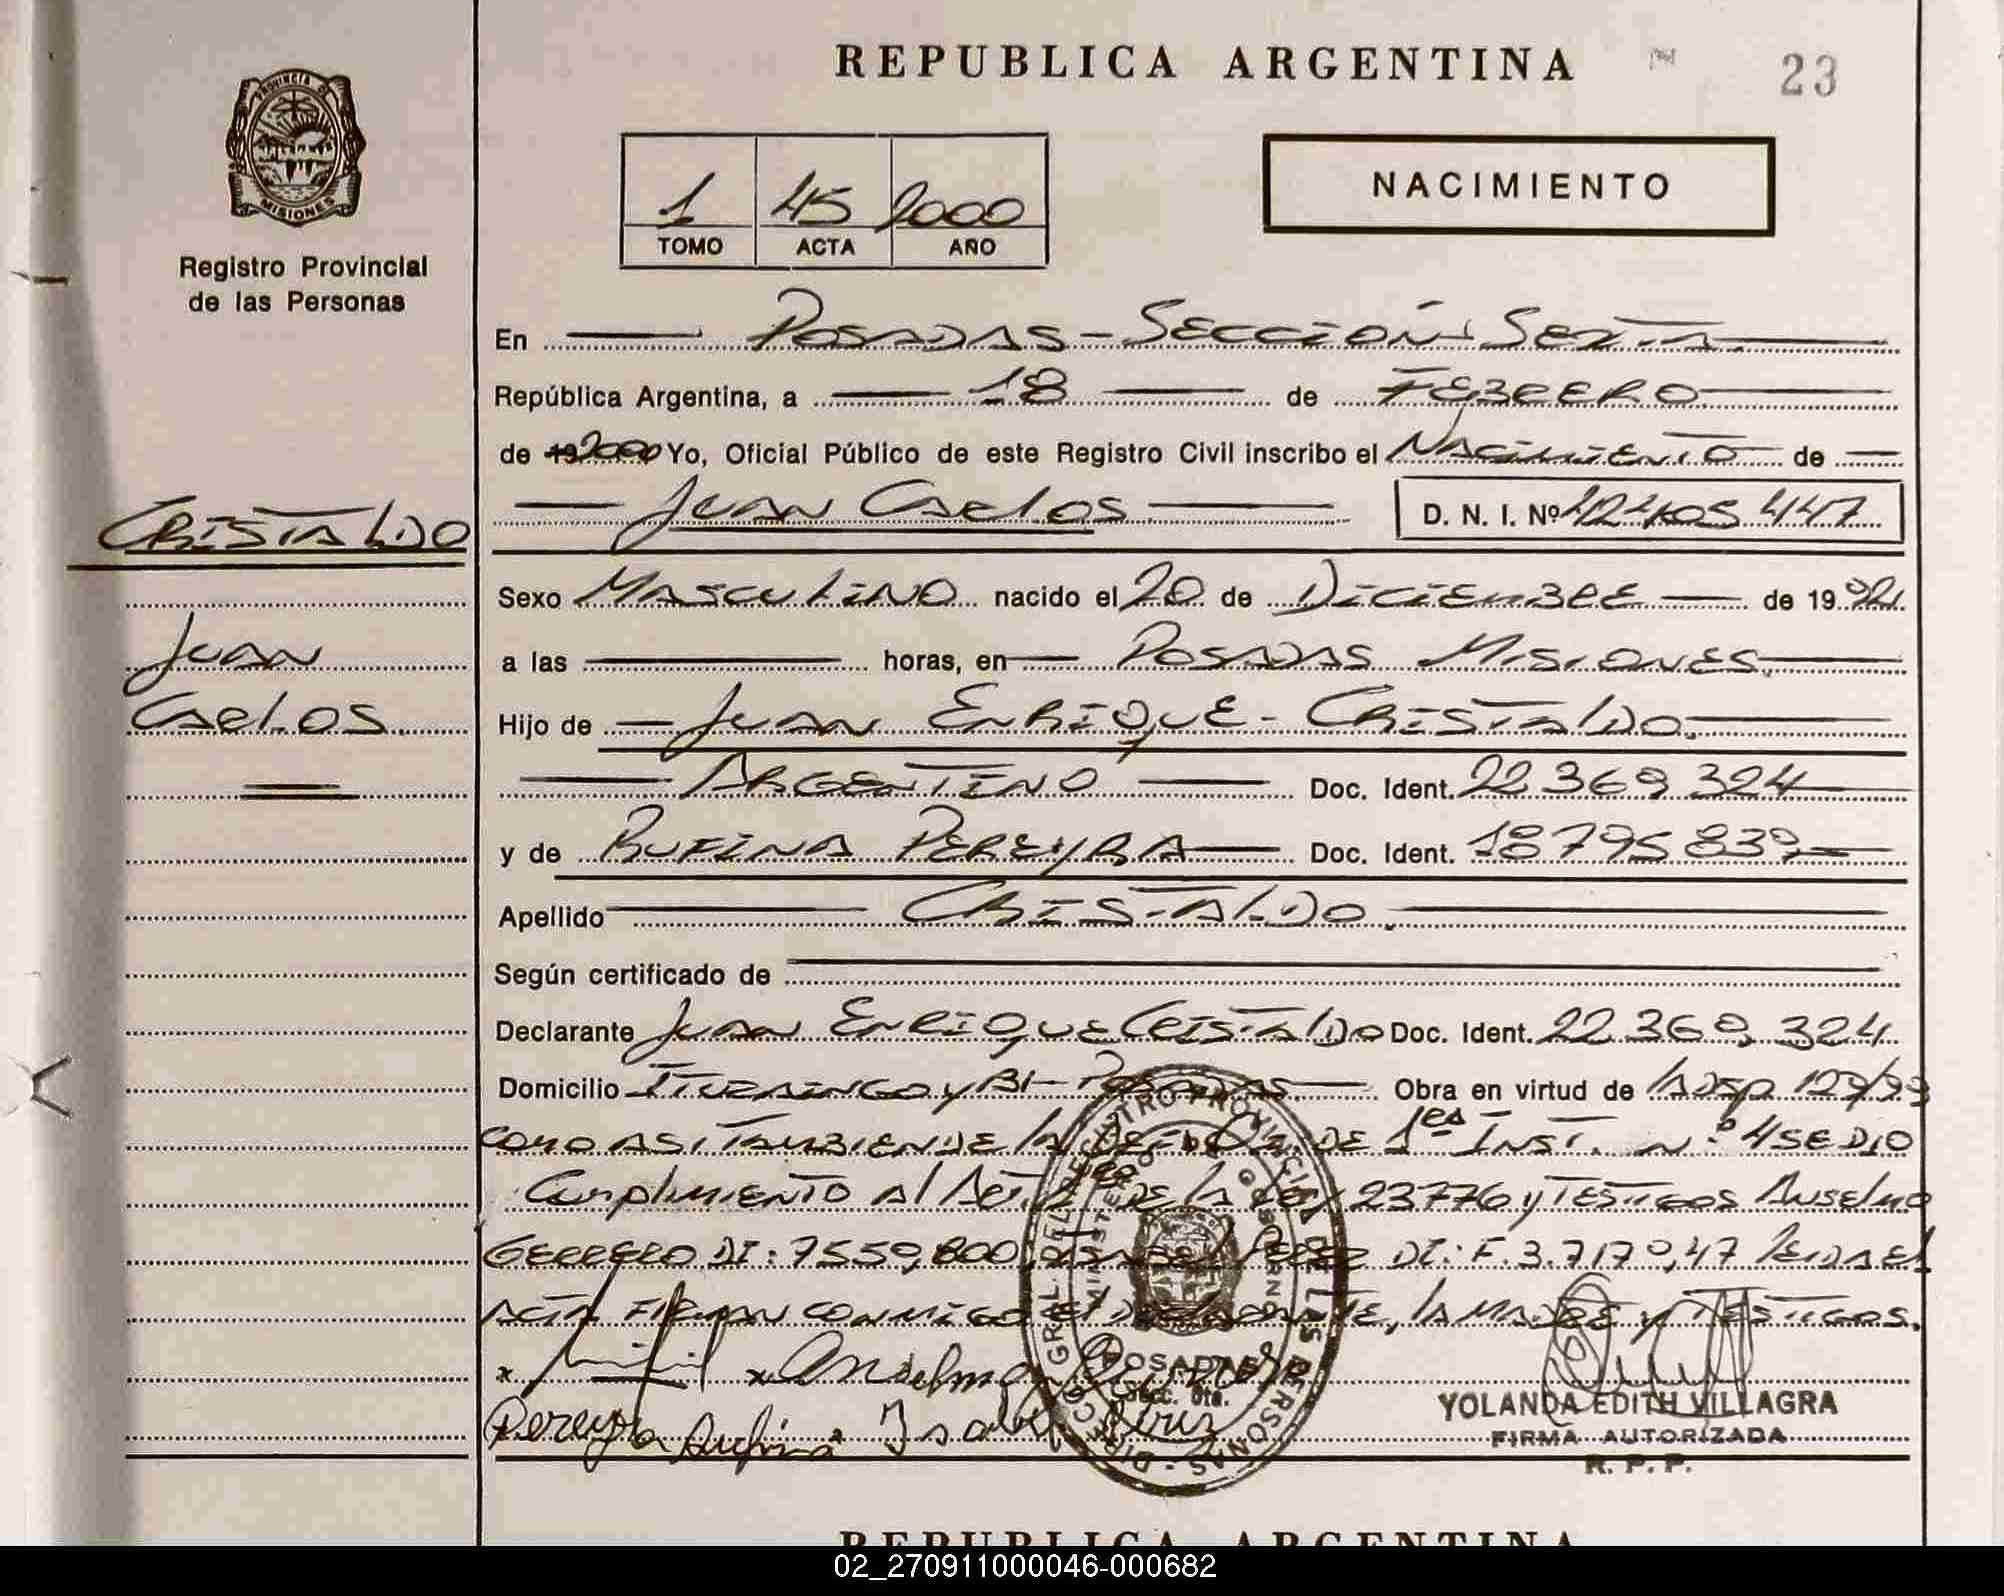 REPUBLICA ARGENTINA
23
PROVINCIA DE
MISIONES
Registro Provincial
de las Personas
1 45 2000
TOMO ACTA AÑO
NACIMIENTO
En POSADAS - SECCIÓN SEXTA.
República Argentina, a 18 de FEBRERO
de 19 2000 Yo, Oficial Público de este Registro Civil inscribo el NACIMIENTO de
JUAN CARLOS D. N. I. Nº 42405447
CRISTALDO
JUAN
CARLOS
Sexo MASCULINO nacido el 20 de DICIEMBRE de 19
a las horas, en POSADAS MISIONES.
Hijo de JUAN ENRIQUE - CRISTALDO.
ARGENTINO Doc. Ident. 22.369.324
y de RUFINA PEREYRA Doc. Ident. 18795839
Apellido CRISTALDO.
Según certificado de
Declarante JUAN ENRIQUE CRISTALDO Doc. Ident. 22.369.324
Domicilio ITUZAINGO y - POSADAS. Obra en virtud de la DISP 129/99
COMO ASI TAMBIEN DE la DE 1era INST. Nº 4 SE DIO
Cumplimiento al ART. DE la LEY 23776 y TESTIGOS Anselmo
DI: 7559,800 PEREZ DI: F.3.717 47 LEIDA El
ACTA FIRMAN CONMIGO El DECLARANTE, la MADRE y TESTIGOS.
x x Anselmo
Pereyra Rufina Isabel Perez
DIRECCION GRAL. DEL REGISTRO PROVINCIAL DE LAS PERSONAS
MINISTERIO DE GOBIERNO
POSADAS
Secc. 6ta.
YOLANDA EDITH VILLAGRA
FIRMA AUTORIZADA
R. P. P.
REPUBLICA ARGENTINA
02_270911000046-000682